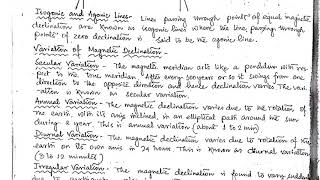 Isogonic and Agonic Lines:- Lines passing through points of equal magnetic
declination are known as isogonic lines where the line passing through
points of zero declination is said to be agonic line.
Variation of Magnetic Declination:-
Secular Variation:- The magnetic meridian acts like a pendulum with res
pect to the true meridian. After every 300 years or so it swings from one
direction to the opposite direction and hence declination varies. The vari
ation is known as secular variation.
Annual Variation:- The magnetic declination varies due to the rotation of
the earth, with its axis inclined, in an elliptical path around the sun
during a year. This is annual variation (about 1 to 2 min)
Diurnal Variation:- The magnetic declination varies due to rotation of the
earth on its own axis in 24 hours. This is known as diurnal variation
(3 to 12 minutes)
Irregular Variation:- The magnetic declination is found to vary sudden